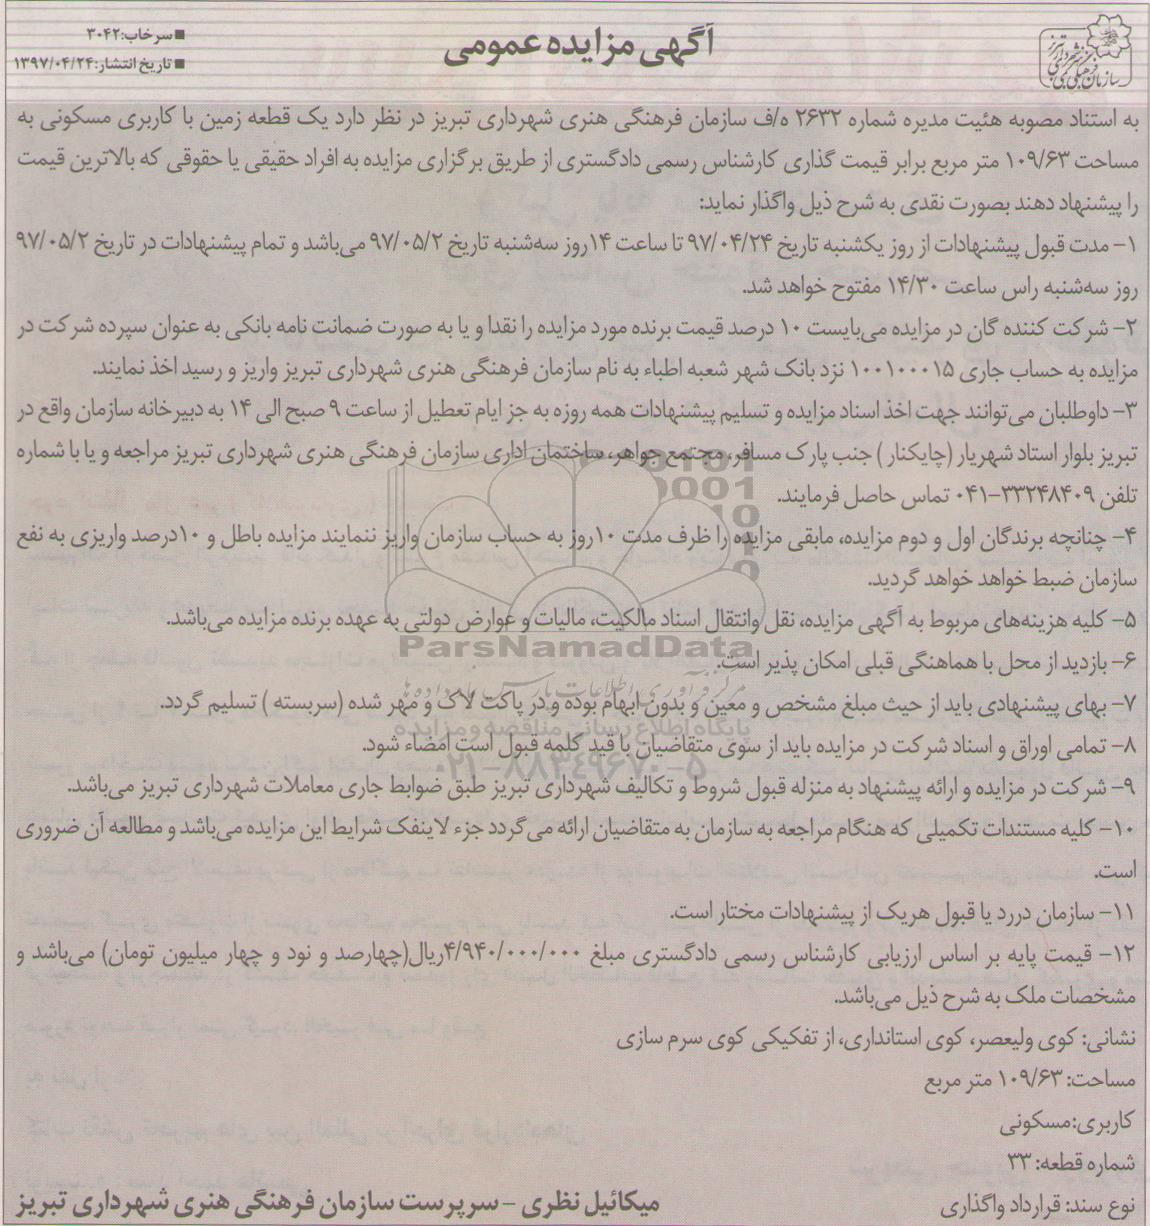 سازمان فرهنگی هنری شهرداری تبریز
آگهی مزایده عمومی
■ سرخاب:۳۰۴۲
■ تاریخ انتشار:۱۳۹۷/۰۴/۲۴
به استناد مصوبه هئیت مدیره شماره ۲۶۳۲ ه/ف سازمان فرهنگی هنری شهرداری تبریز در نظر دارد یک قطعه زمین با کاربری مسکونی به
مساحت ۱۰۹/۶۳ متر مربع برابر قیمت گذاری کارشناس رسمی دادگستری از طریق برگزاری مزایده به افراد حقیقی یا حقوقی که بالاترین قیمت
را پیشنهاد دهند بصورت نقدی به شرح ذیل واگذار نماید:
۱- مدت قبول پیشنهادات از روز یکشنبه تاریخ ۹۷/۰۴/۲۴ تا ساعت ۱۴روز سه‌شنبه تاریخ ۹۷/۰۵/۲ می‌باشد و تمام پیشنهادات در تاریخ ۹۷/۰۵/۲
روز سه‌شنبه راس ساعت ۱۴/۳۰ مفتوح خواهد شد.
۲- شرکت کننده گان در مزایده می‌بایست ۱۰ درصد قیمت برنده مورد مزایده را نقدا و یا به صورت ضمانت نامه بانکی به عنوان سپرده شرکت در
مزایده به حساب جاری ۱۰۰۱۰۰۰۱۵ نزد بانک شهر شعبه اطباء به نام سازمان فرهنگی هنری شهرداری تبریز واریز و رسید اخذ نمایند.
۳- داوطلبان می‌توانند جهت اخذ اسناد مزایده و تسلیم پیشنهادات همه روزه به جز ایام تعطیل از ساعت ۹ صبح الی ۱۴ به دبیرخانه سازمان واقع در
تبریز بلوار استاد شهریار (چایکنار ) جنب پارک مسافر، مجتمع جواهر، ساختمان اداری سازمان فرهنگی هنری شهرداری تبریز مراجعه و یا با شماره
تلفن ۳۳۲۴۸۴۰۹-۰۴۱ تماس حاصل فرمایند.
۴- چنانچه برندگان اول و دوم مزایده، مابقی مزایده را ظرف مدت ۱۰روز به حساب سازمان واریز ننمایند مزایده باطل و ۱۰درصد واریزی به نفع
سازمان ضبط خواهد خواهد گردید.
۵- کلیه هزینه‌های مربوط به آگهی مزایده، نقل وانتقال اسناد مالکیت، مالیات و عوارض دولتی به عهده برنده مزایده می‌باشد.
ParsNamadData
۶- بازدید از محل با هماهنگی قبلی امکان پذیر است.
مرکز فرآوری اطلاعات پارس نماد داده ها
۷- بهای پیشنهادی باید از حیث مبلغ مشخص و معین و بدون ابهام بوده و در پاکت لاک و مهر شده (سربسته ) تسلیم گردد.
پایگاه اطلاع رسانی مناقصه و مزایده
۸- تمامی اوراق و اسناد شرکت در مزایده باید از سوی متقاضیان با قید کلمه قبول است امضاء شود.
۰۲۱-۸۸۳۴۹۶۷۰-۵
۹- شرکت در مزایده و ارائه پیشنهاد به منزله قبول شروط و تکالیف شهرداری تبریز طبق ضوابط جاری معاملات شهرداری تبریز می‌باشد.
۱۰- کلیه مستندات تکمیلی که هنگام مراجعه به سازمان به متقاضیان ارائه می گردد جزء لاینفک شرایط این مزایده می‌باشد و مطالعه آن ضروری
است.
۱۱- سازمان دررد یا قبول هریک از پیشنهادات مختار است.
۱۲- قیمت پایه بر اساس ارزیابی کارشناس رسمی دادگستری مبلغ ۴/۹۴۰/۰۰۰/۰۰۰ریال(چهارصد و نود و چهار میلیون تومان) می‌باشد و
مشخصات ملک به شرح ذیل می‌باشد.
نشانی: کوی ولیعصر، کوی استانداری، از تفکیکی کوی سرم سازی
مساحت: ۱۰۹/۶۳ متر مربع
کاربری:مسکونی
شماره قطعه: ۳۳
نوع سند: قرارداد واگذاری
میکائیل نظری - سرپرست سازمان فرهنگی هنری شهرداری تبریز